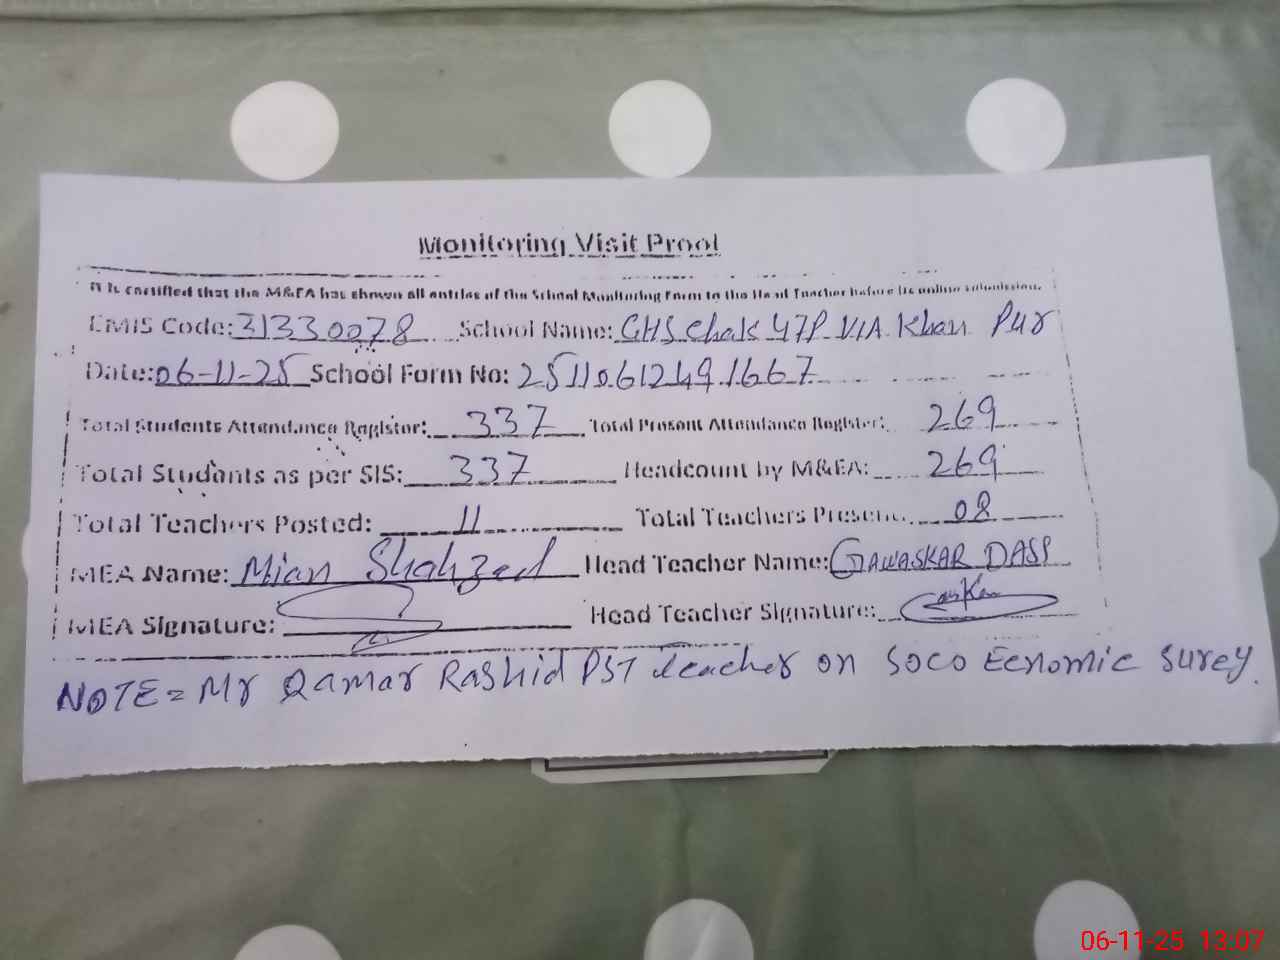 Monitoring Visit Proof
It is certified that the M&EA has shown all entries of the School Monitoring Form to the Head Teacher before its online submission.
EMIS Code: 31330078 School Name: GHS Chak 47P VIA Khan Pur
Date: 06-11-25 School Form No: 25110612491667
Total Students Attendance Register: 337 Total Present Attendance Register: 269
Total Students as per SIS: 337 Headcount by M&EA: 269
Total Teachers Posted: 11 Total Teachers Present: 08
MEA Name: Mian Shahzad Head Teacher Name: GAWASKAR DASS
MEA Signature: Head Teacher Signature:
NOTE = Mr Qamar Rashid PST teacher on Soco Eenomic Surey.
06-11-25 13:07